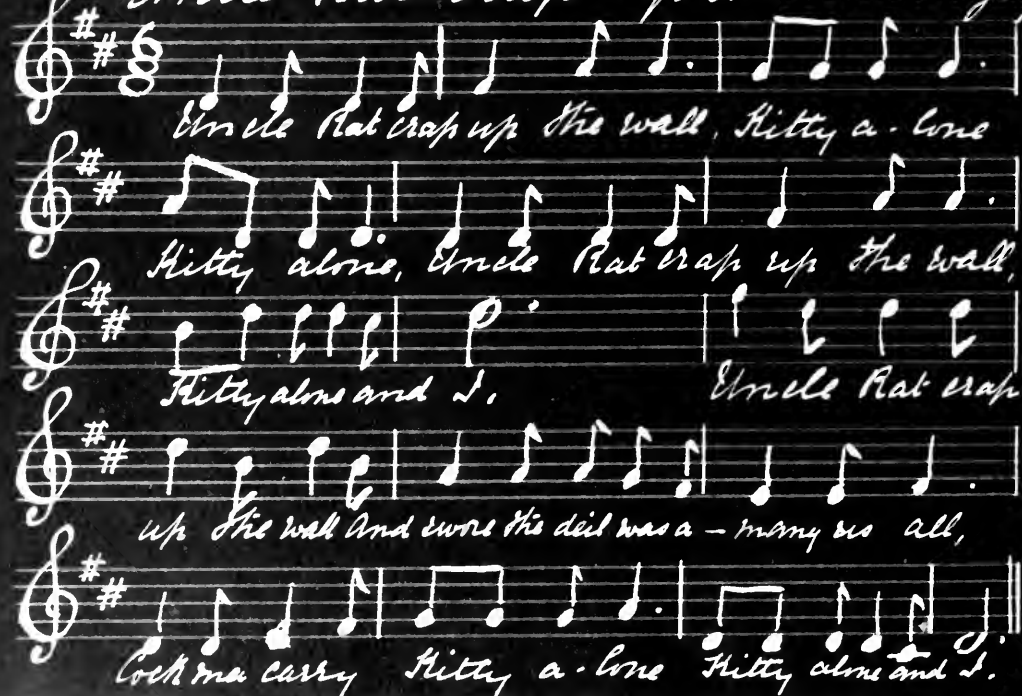 Uncle Rat crap up the wall, Kitty a-lone
Kitty alone, Uncle Rat crap up the wall,
Kitty alone and I. Uncle Rat crap
up the wall And swore the deil was a-mang us all,
Cock ma carry Kitty a-lone Kitty alone and I.